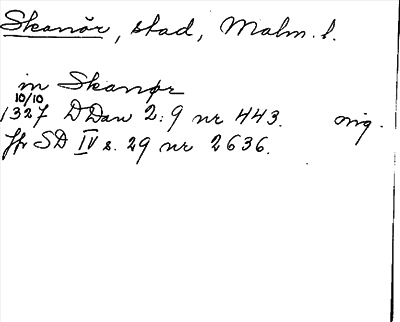 Skanör, stad, Malm. l.
in Skanør
10/10
1327 DDan 2:9 nr 443. orig.
Jfr SD IV s. 29 nr 2636.